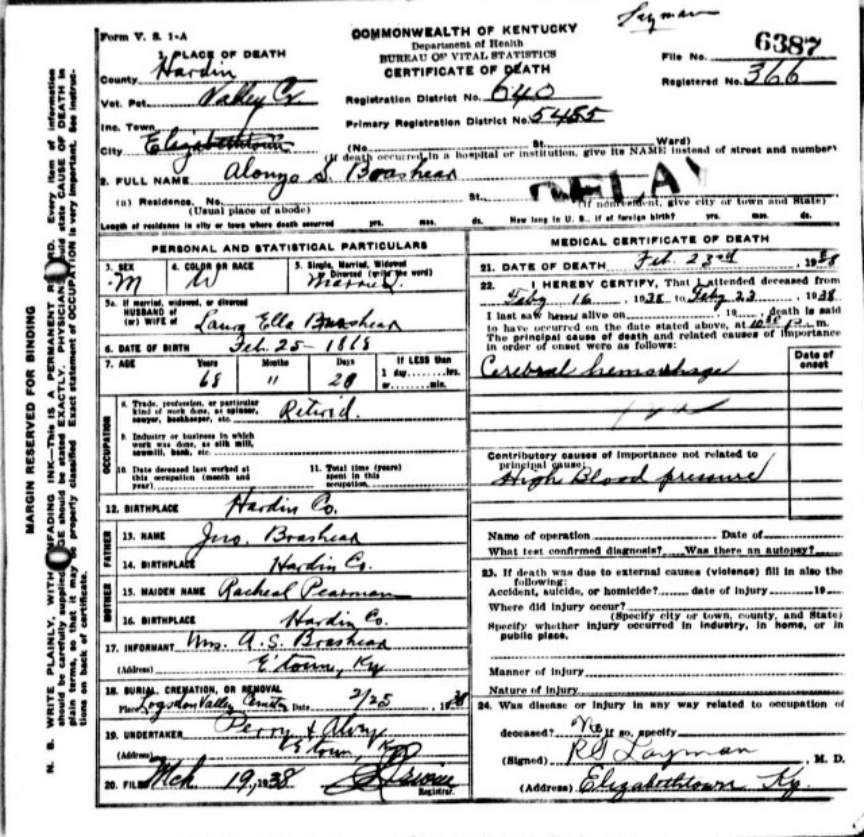 Layman
Form V. S. 1-A
COMMONWEALTH OF KENTUCKY
Department of Health
BUREAU OF VITAL STATISTICS
CERTIFICATE OF DEATH
File No. 6387
Registered No. 366
1. PLACE OF DEATH
County Hardin
Vot. Pct. Valley Cr.
Registration District No. 640
Inc. Town
Primary Registration District No. 5485
City Elizabethtown
(No. St. Ward)
(If death occurred in a hospital or institution, give its NAME instead of street and number)
2. FULL NAME Alonzo S. Brashear
DELAY
(a) Residence. No. St.
(Usual place of abode) (If nonresident, give city or town and State)
Length of residence in city or town where death occurred yrs. mos. ds. How long in U. S., if of foreign birth? yrs. mos. ds.
PERSONAL AND STATISTICAL PARTICULARS
3. SEX 4. COLOR OR RACE 5. Single, Married, Widowed
or Divorced (write the word)
M W Married.
5a. If married, widowed, or divorced
HUSBAND of
(or) WIFE of Laura Ella Brashear
6. DATE OF BIRTH Feb. 25 - 1868
7. AGE Years Months Days If LESS than
1 day, hrs.
or min.
68 11 28
OCCUPATION
8. Trade, profession, or particular
kind of work done, as spinner,
sawyer, bookkeeper, etc. Retired.
9. Industry or business in which
work was done, as silk mill,
sawmill, bank, etc.
10. Date deceased last worked at
this occupation (month and
year)
11. Total time (years)
spent in this
occupation
12. BIRTHPLACE Hardin Co.
FATHER
13. NAME Jno. Brashear
14. BIRTHPLACE Hardin Co.
MOTHER
15. MAIDEN NAME Racheal Pearman
16. BIRTHPLACE Hardin Co.
17. INFORMANT Mrs. A. S. Brashear
(Address) E'town, Ky
18. BURIAL, CREMATION, OR REMOVAL
Place Logsdon Valley Date 2/25, 1938
19. UNDERTAKER Perry & Alvey
(Address) E'town, Ky
20. FILED Mch 19, 1938
Registrar.
MEDICAL CERTIFICATE OF DEATH
21. DATE OF DEATH Feb. 23rd, 1938
22. I HEREBY CERTIFY, That I attended deceased from
Feby 16, 1938 to Feby 23, 1938
I last saw h alive on , 19 , death is said
to have occurred on the date stated above, at m.
The principal cause of death and related causes of importance
in order of onset were as follows:
Date of
onset
Cerebral hemorrhage
Contributory causes of importance not related to
principal cause:
High Blood pressure
Name of operation Date of
What test confirmed diagnosis? Was there an autopsy?
23. If death was due to external causes (violence) fill in also the
following:
Accident, suicide, or homicide? date of injury 19
Where did injury occur?
(Specify city or town, county, and State)
Specify whether injury occurred in industry, in home, or in
public place.
Manner of injury
Nature of injury
24. Was disease or injury in any way related to occupation of
deceased? No If so, specify
(Signed) R S Layman, M. D.
(Address) Elizabethtown Ky.
MARGIN RESERVED FOR BINDING